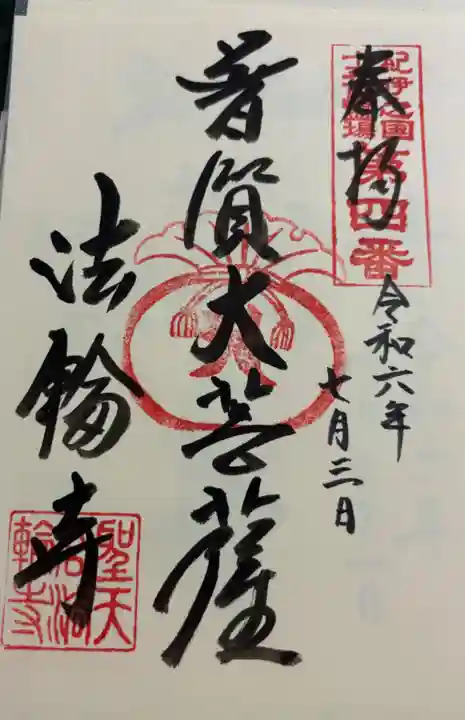 紀伊之国
十三佛霊場
第四番
奉拝
令和六年
七月三日
普賢大菩薩
法輪寺
聖天
輪寺